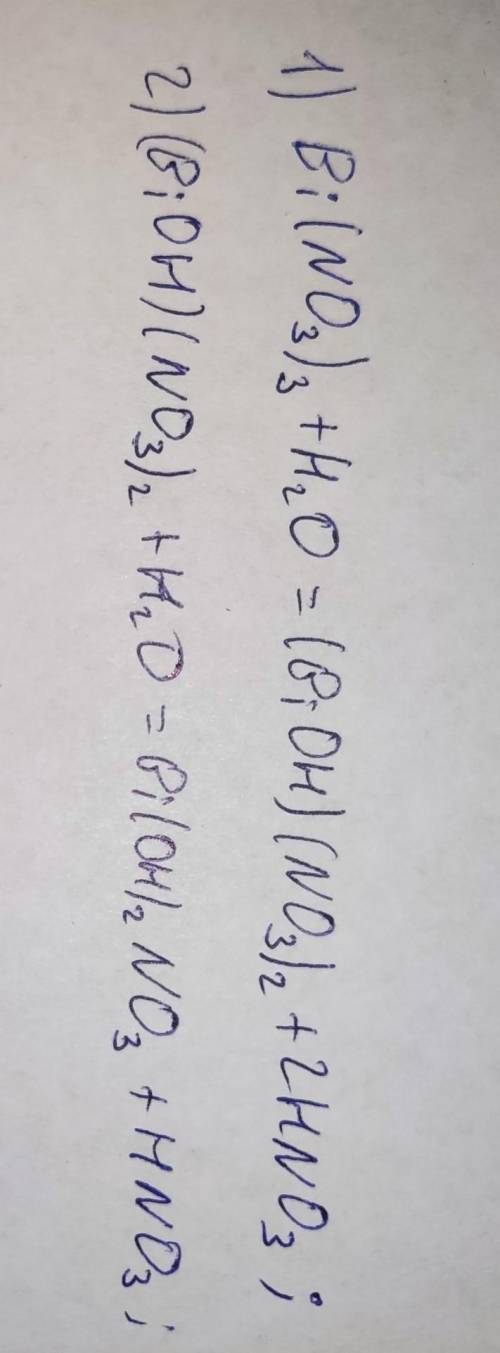 1) Bi(NO₃)₃ + H₂O = (BiOH)(NO₃)₂ + 2HNO₃;
2) (BiOH)(NO₃)₂ + H₂O = Bi(OH)₂NO₃ + HNO₃;